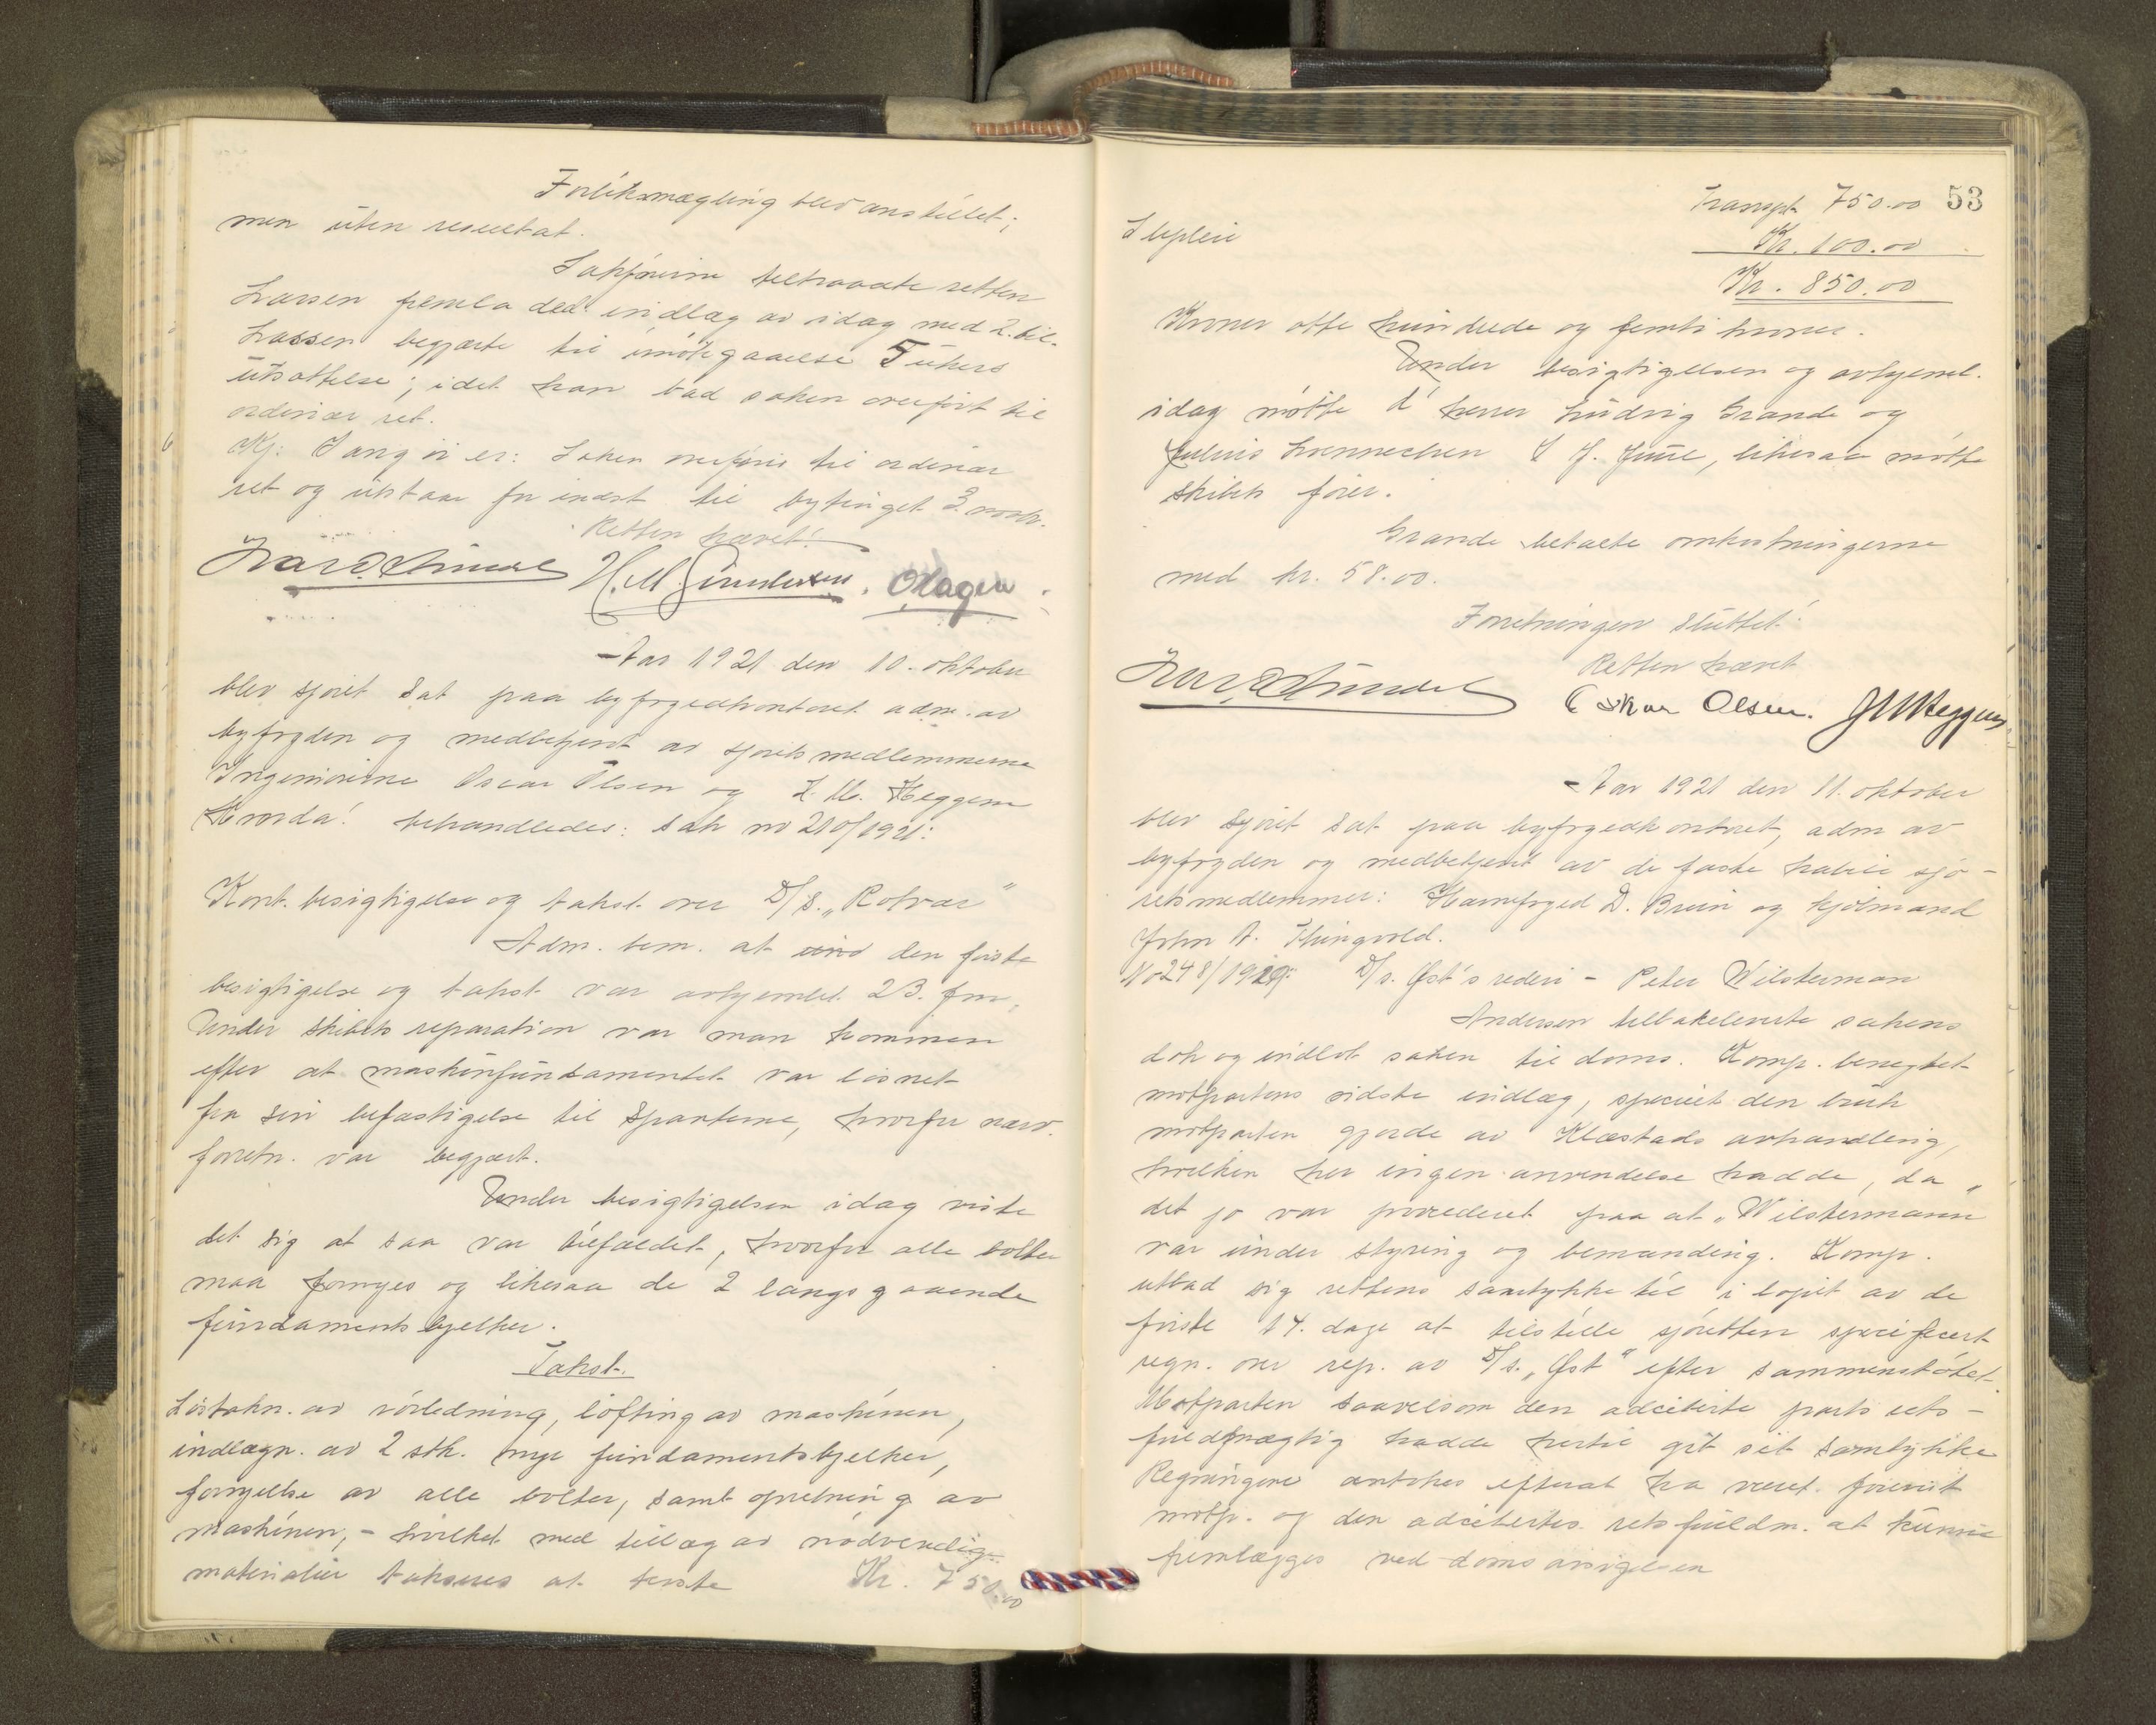 Forliksmægling blev anstillet;
men uten resultat.
Sakførerne tiltraadte retten
Larsen fremla ded. indlæg av idag med 2. bil.
Lassen begjærte til imøtegaaelse 5 ukers
utsættelse; idet han bad saken overført til
ordinær ret.
Kj: Saken overføres til ordinær
ret og utstaar for indst til bytinget 3. novb.
Retten hævet!
H. M. Gundersen. O Hagen.
Aar 1921 den 10. oktober
blev sjøret sat paa byfogedkontoret adm. av
byfogden og medbetjent av sjøretsmedlemmerne
Ingeniørerne Oscar Olsen og J. M. Heggem
Hvorda! behandledes: Sak no 210/1921:
Kont. besigtigelse og takst over D/S. „Rotvær"
Adm. bem. at den første
besigtigelse og takst var avhjemlet 23. f.m.
Under skibets reparation var man kommen
efter at maskinfundamentet var løsnet
fra sin befæstigelse til spanterne, hvorfor nærv.
forretn. var begjært.
Under besigtigelsen idag viste
det sig at saa var tilfældet, hvorfor alle bolter
maa fornyes og likesaa de 2 langsgaaende
fundamentsbjelker.
Takst.
Løstakn. av rørledning, løfting av maskinen,
indlægn. av 2 stk. nye fundamentsbjelker,
fornyelse av alle bolter, samt opretning av
maskinen, – hvilket med tillæg av nødvendig
materialier takseres at koste Kr. 750.00
Transpt. 750.00 53
Slipleie Kr. 100.00
Kr. 850.00
Kroner otte hundrede og femti kroner.
Under besigtigelsen og avhjeml.
idag møtte d' herrer Ludvig Grande og
Julius Lvennechen & J. Juul, likesaa møtte
skibets fører.
Grande betalte omkostningerne
med kr. 58.00.
Forretningen sluttet!
Retten hævet
Oskar Olsen. J M Heggem
Aar 1921 den 11. oktober
blev sjøret sat paa byfogedkontoret, adm av
byfogden og medbetjent av de faste habile sjø-
retsmedlemmer: Havnefoged D. Bruin og kjølmand
John A. Thingvold.
No 248/1919: D/s. Øst's rederi – Peter Wilsterman
Andersen tilbakeleverte sakens
dok og indlot saken til doms. Komp. benegtet
motpartens sidste indlæg, specielt den bruk
motparten gjorde av Klæstads avhandling,
hvilken her ingen anvendelse hadde, da
det jo var procederet paa at „Wilstermann"
var under styring og bemanding. Komp.
utbad sig rettens samtykke til i løpet av de
første 14. dage at tilstille sjøretten specificert
regn. over rep. av D/s. „Øst" efter sammenstøtet.
Motparten saavelsom den adciterte parts rets-
fuldmægtig hadde hertil git sit samtykke
Regningene antokes efterat ha været forevist
motp. og den adcitertes retsfuldm. at kunne
fremlægges ved doms avsigelsen